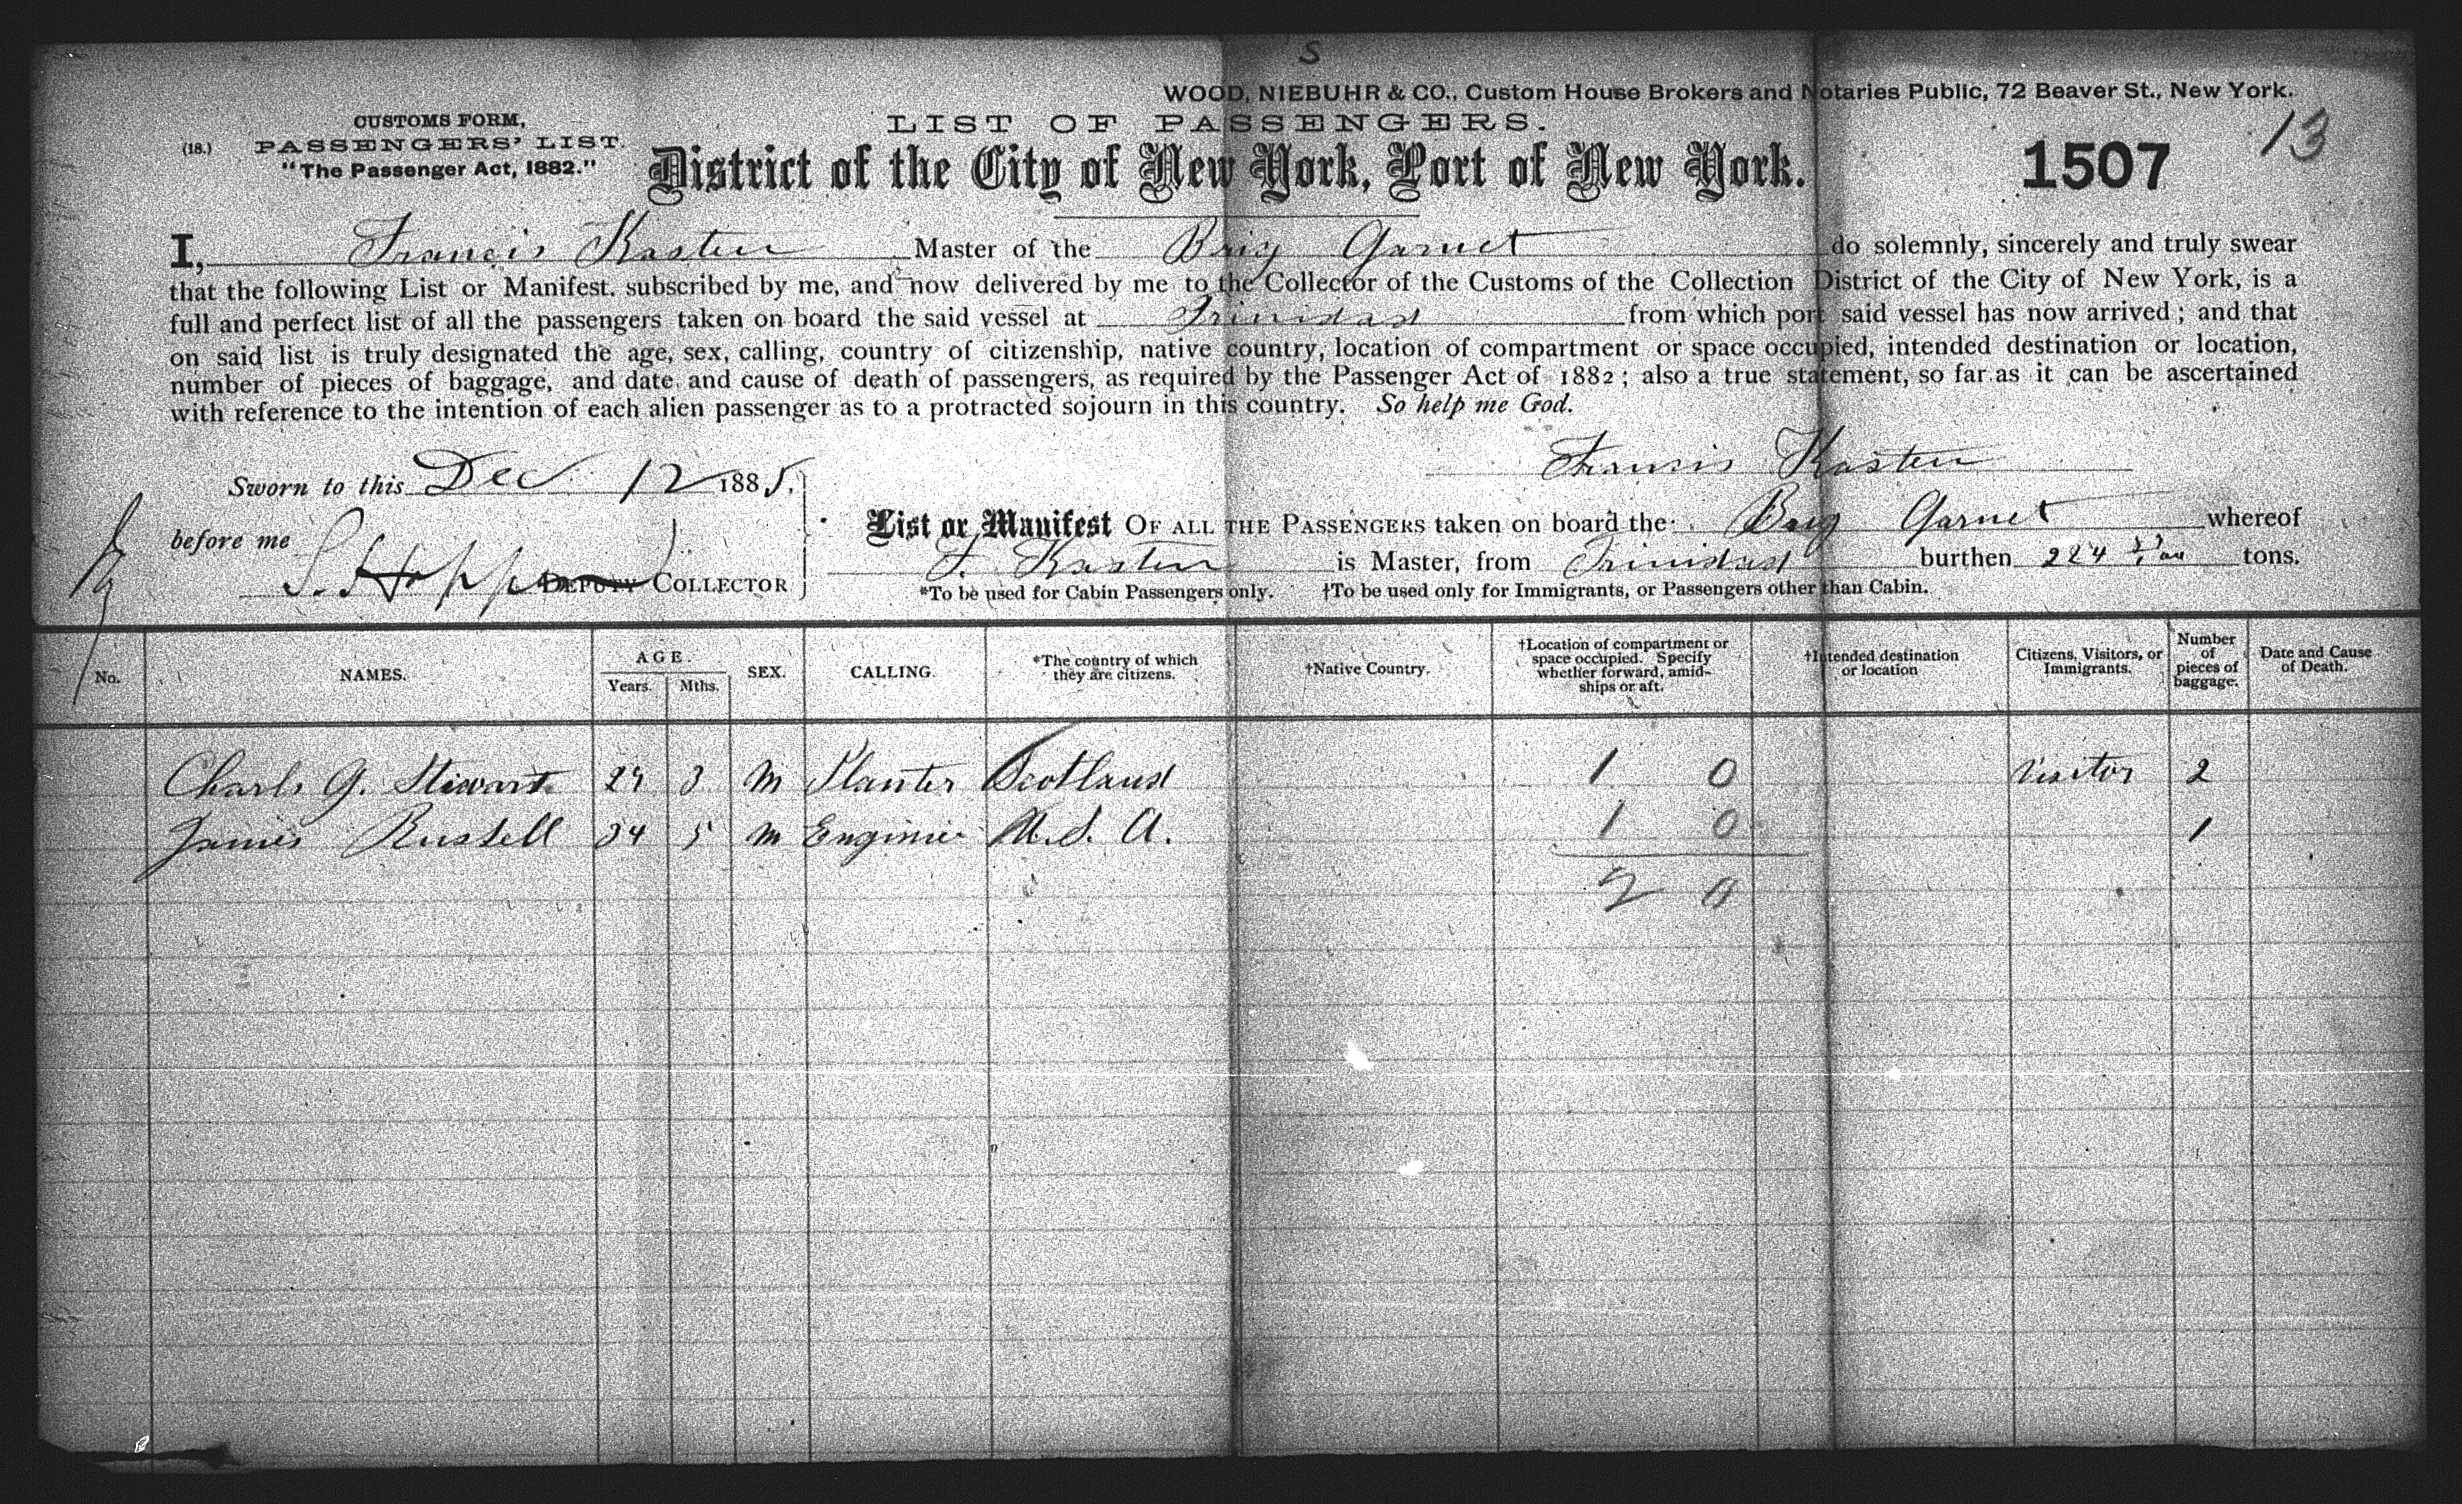 S
WOOD, NIEBUHR & CO., Custom House Brokers and Notaries Public, 72 Beaver St., New York.
CUSTOMS FORM,
(18.) PASSENGERS' LIST.
"The Passenger Act, 1882."
LIST OF PASSENGERS.
District of the City of New York, Port of New York.
1507
13
I, Francis Kasten Master of the Brig Garnet do solemnly, sincerely and truly swear
that the following List or Manifest, subscribed by me, and now delivered by me to the Collector of the Customs of the Collection District of the City of New York, is a
full and perfect list of all the passengers taken on board the said vessel at Trinidad from which port said vessel has now arrived; and that
on said list is truly designated the age, sex, calling, country of citizenship, native country, location of compartment or space occupied, intended destination or location,
number of pieces of baggage, and date and cause of death of passengers, as required by the Passenger Act of 1882; also a true statement, so far as it can be ascertained
with reference to the intention of each alien passenger as to a protracted sojourn in this country. So help me God.
Francis Kasten
Sworn to this Dec 12 1885.
before me
DEPUTY COLLECTOR
List or Manifest OF ALL THE PASSENGERS taken on board the Brig Garnet whereof
F. Kasten is Master, from Trinidad burthen 224 tons.
*To be used for Cabin Passengers only. †To be used only for Immigrants, or Passengers other than Cabin.
No. NAMES. AGE. Years. Mths. SEX. CALLING. *The country of which they are citizens. †Native Country. †Location of compartment or space occupied. Specify whether forward, amidships or aft. †Intended destination or location Citizens, Visitors, or Immigrants. Number of pieces of baggage. Date and Cause of Death.
Charls G. Stewart 29 3 M Planter Scotland 1 0 Visitor 2
James Russell 34 5 M Enginier U.S.A. 1 0 1
2 0